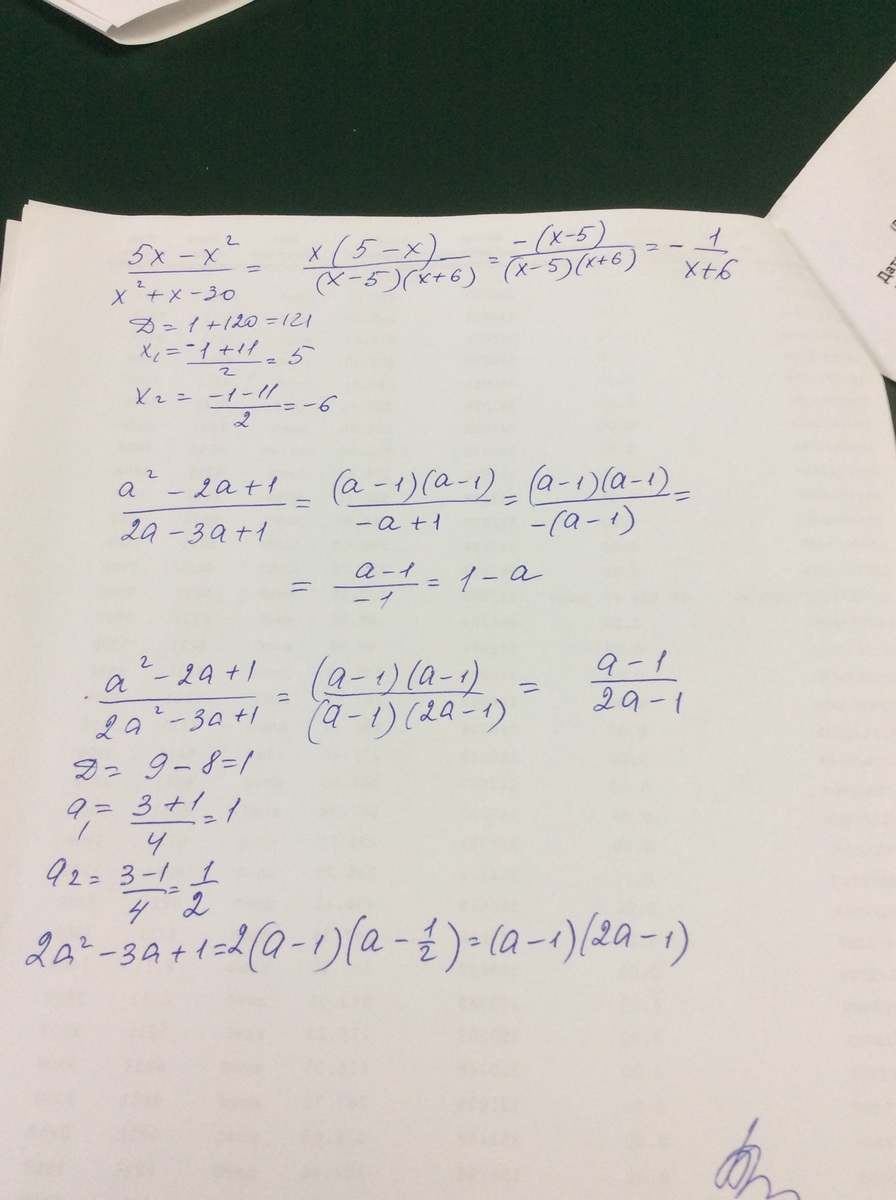 (5x - x²)/(x² + x - 30) = x(5 - x)/((x - 5)(x + 6)) = -(x - 5)/((x - 5)(x + 6)) = - 1/(x + 6)
D = 1 + 120 = 121
x₁ = (-1 + 11)/2 = 5
x₂ = (-1 - 11)/2 = -6
(a² - 2a + 1)/(2a - 3a + 1) = (a - 1)(a - 1)/(-a + 1) = (a - 1)(a - 1)/(-(a - 1)) =
= (a - 1)/(-1) = 1 - a
(a² - 2a + 1)/(2a² - 3a + 1) = (a - 1)(a - 1)/((a - 1)(2a - 1)) = (a - 1)/(2a - 1)
D = 9 - 8 = 1
a₁ = (3 + 1)/4 = 1
a₂ = (3 - 1)/4 = 1/2
2a² - 3a + 1 = 2(a - 1)(a - 1/2) = (a - 1)(2a - 1)
Дат